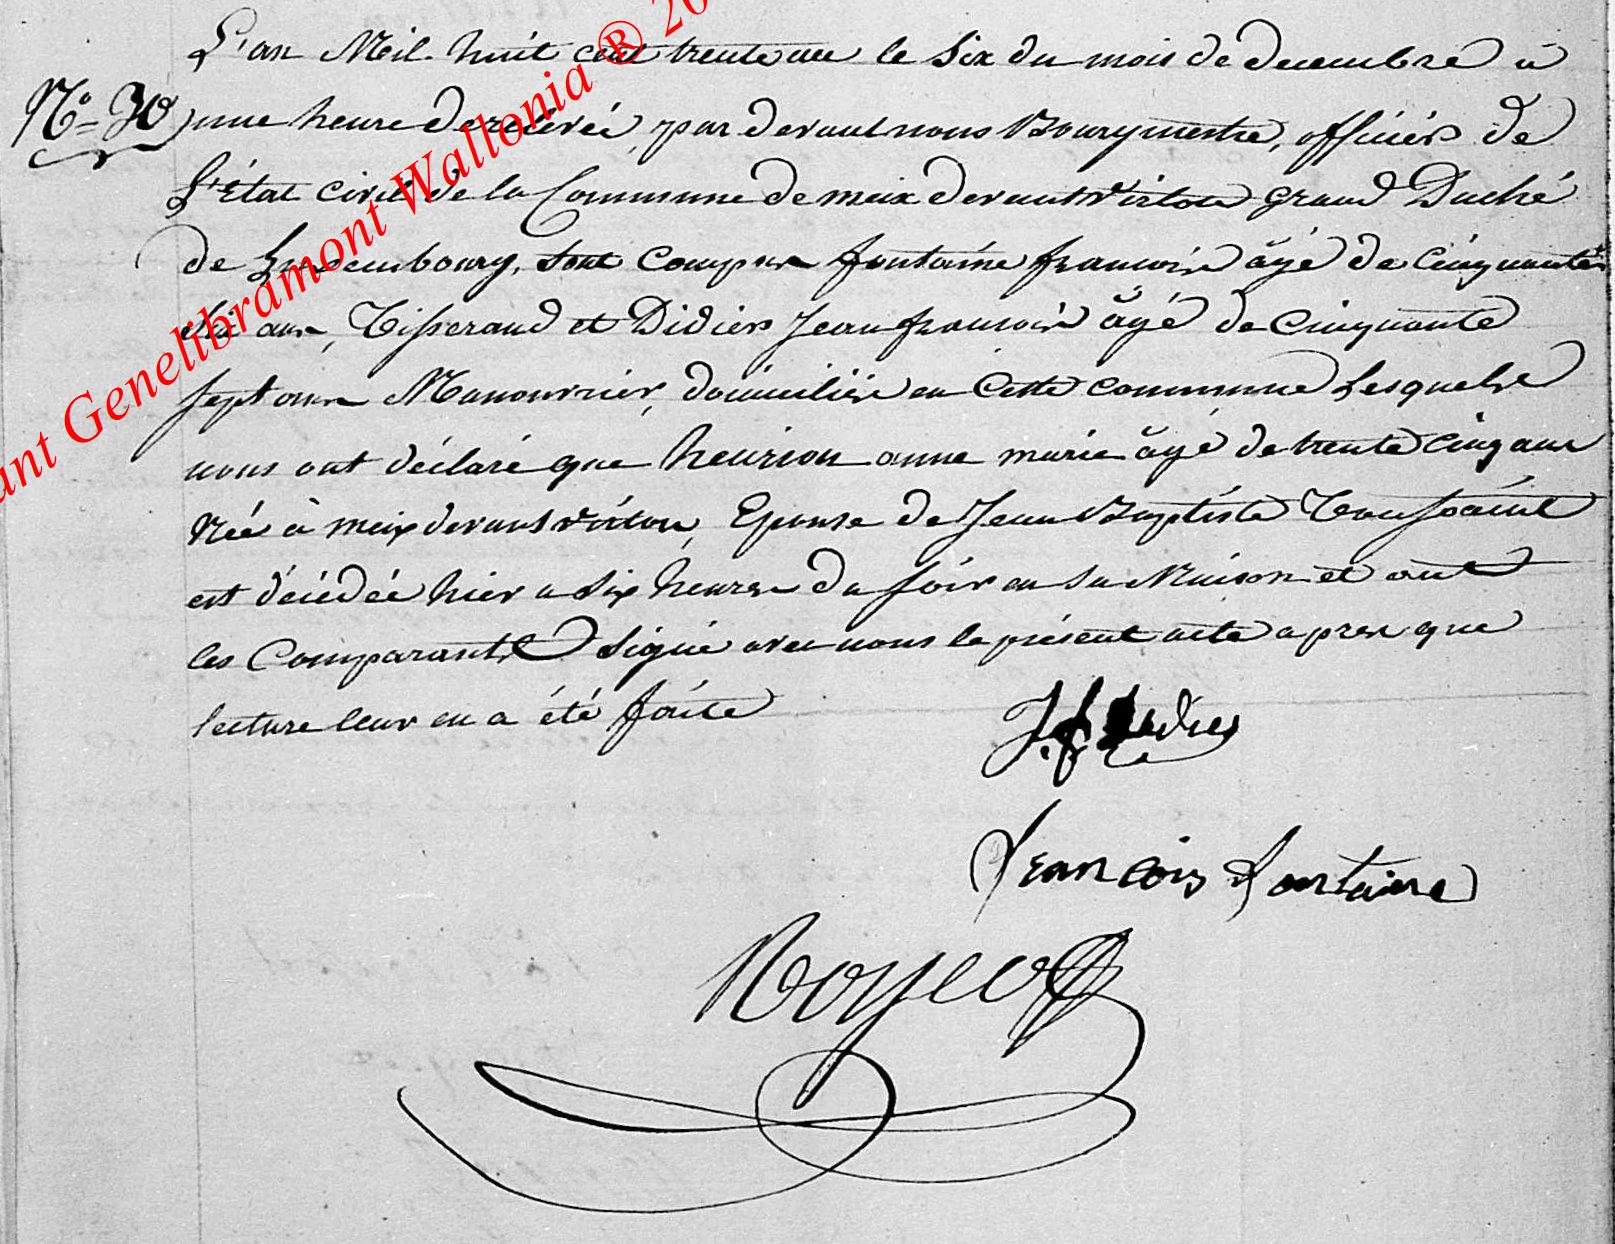 L'an Mil huit cent trente un le Six du mois de decembre à
N.° 30 une heure de relevée, par devant nous Bourgmestre, officier de
L'Etat civil de la Commune de meix devant virton grand Duché
de Luxembourg, sont comparu fontaine francois âgé de cinquante
ans, Tisserand et Didier Jean francois âgé de Cinquante
sept ans Manouvrier, domiciliés en Cette commune Lesquels
nous ont déclaré que henrion anne marie âgé de trente cinq ans
Née à meix devant virton, Epouse de Jean Baptiste Toussaint
est décédée hier a six heures du soir en sa Maison et ont
les Comparants Signé avec nous le présent acte apres que
lecture leur en a été faite
J. f. Didier
francois fontaine
ant Genelibramont Wallonia ® 20